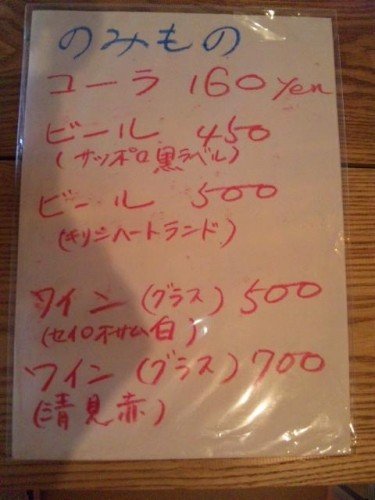 のみもの
コーラ 160 yen
ビール 450
(サッポロ黒ラベル)
ビール 500
(キリンハートランド)
ワイン (グラス) 500
白)
ワイン (グラス) 700
(清見赤)